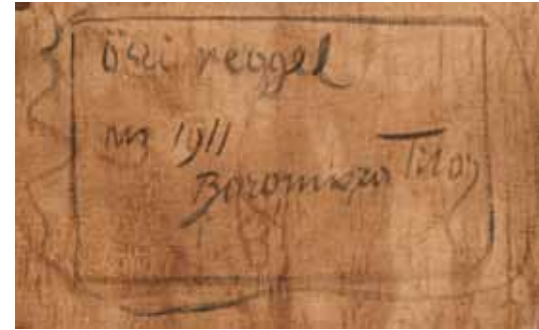 őszi reggel
1911
Boromisza Tibor